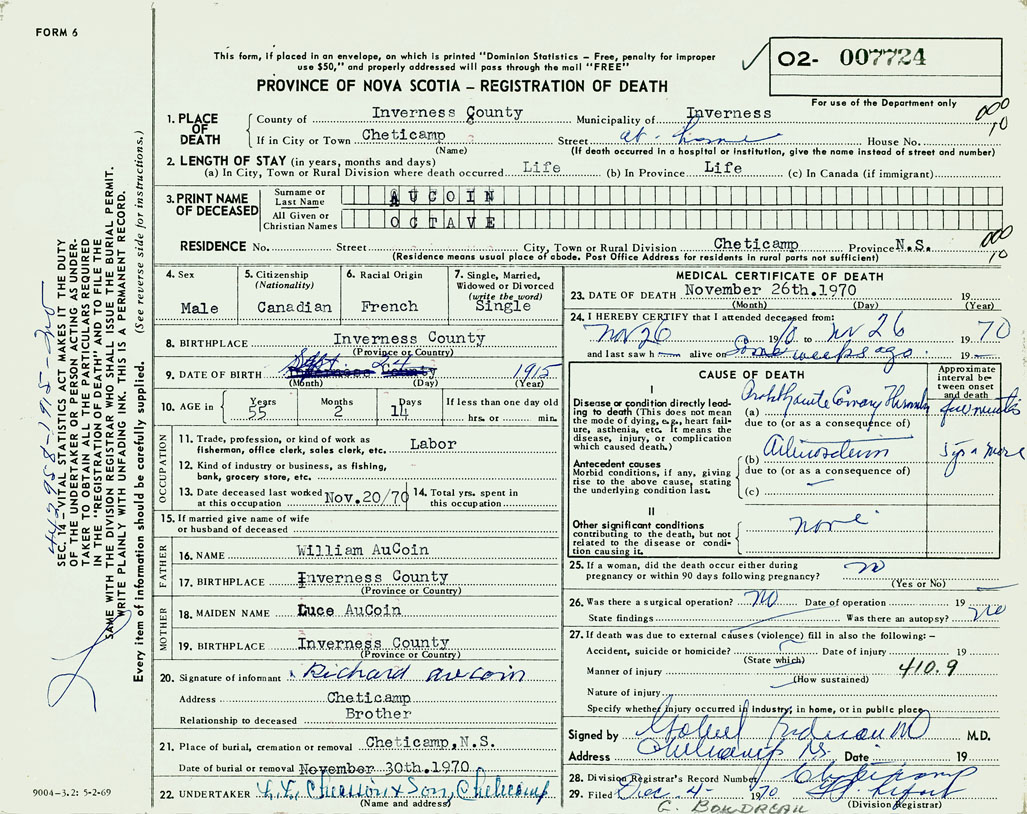 FORM 6
This form, if placed in an envelope, on which is printed "Dominion Statistics - Free, penalty for improper
use $50," and properly addressed will pass through the mail "FREE"
PROVINCE OF NOVA SCOTIA – REGISTRATION OF DEATH
O2- 007724
For use of the Department only
1. PLACE OF DEATH
County of Inverness County Municipality of Inverness
000
10
If in City or Town Cheticamp Street at home House No.
(Name) (If death occurred in a hospital or institution, give the name instead of street and number)
2. LENGTH OF STAY (in years, months and days)
(a) In City, Town or Rural Division where death occurred Life (b) In Province Life (c) In Canada (if immigrant)
3. PRINT NAME OF DECEASED
Surname or Last Name AUCOIN
All Given or Christian Names OCTAVE
RESIDENCE No. Street City, Town or Rural Division Cheticamp Province N.S.
000
10
(Residence means usual place of abode. Post Office Address for residents in rural parts not sufficient)
4. Sex
Male
5. Citizenship
(Nationality)
Canadian
6. Racial Origin
French
7. Single, Married,
Widowed or Divorced
(write the word)
Single
8. BIRTHPLACE Inverness County
(Province or Country)
9. DATE OF BIRTH Sept 1915
(Month) (Day) (Year)
10. AGE in
Years 55
Months 2
Days 14
If less than one day old
hrs. or min.
OCCUPATION
11. Trade, profession, or kind of work as
fisherman, office clerk, sales clerk, etc. Labor
12. Kind of industry or business, as fishing,
bank, grocery store, etc.
13. Date deceased last worked
at this occupation Nov.20/70
14. Total yrs. spent in
this occupation
15. If married give name of wife
or husband of deceased
FATHER
16. NAME William AuCoin
17. BIRTHPLACE Inverness County
(Province or Country)
MOTHER
18. MAIDEN NAME Luce AuCoin
19. BIRTHPLACE Inverness County
(Province or Country)
20. Signature of informant x Richard aucoin
Address Cheticamp
Relationship to deceased Brother
21. Place of burial, cremation or removal Cheticamp, N.S.
Date of burial or removal November 30th.1970
22. UNDERTAKER & Son, Cheticamp
(Name and address)
MEDICAL CERTIFICATE OF DEATH
23. DATE OF DEATH November 26th.1970 19
(Month) (Day) (Year)
24. I HEREBY CERTIFY that I attended deceased from:
Nov 26 1970 to Nov 26 1970
and last saw h alive on Some weeks ago 19
CAUSE OF DEATH
Approximate
interval be-
tween onset
and death
I
Disease or condition directly lead-
ing to death (This does not mean
the mode of dying, e.g., heart fail-
ure, asthenia, etc. It means the
disease, injury, or complication
which caused death.)
(a) Acute Coronary few minutes
due to (or as a consequence of)
(b) 5 yrs or more
Antecedent causes
Morbid conditions, if any, giving
rise to the above cause, stating
the underlying condition last.
due to (or as a consequence of)
(c)
II
Other significant conditions
contributing to the death, but not
related to the disease or condi-
tion causing it.
none
25. If a woman, did the death occur either during
pregnancy or within 90 days following pregnancy? no
(Yes or No)
26. Was there a surgical operation? no Date of operation 19
State findings Was there an autopsy? no
27. If death was due to external causes (violence) fill in also the following: –
Accident, suicide or homicide? Date of injury 19
(State which)
Manner of injury 410.9
(How sustained)
Nature of injury
Specify whether injury occurred in industry, in home, or in public place
Signed by M.D.
Address Cheticamp NS Date 19
28. Division Registrar's Record Number Cheticamp
29. Filed Dec 4- 1970
(Division Registrar)
G. BOUDREAU
9004–3.2: 5-2-69
SEC. 14 – VITAL STATISTICS ACT MAKES IT THE DUTY
OF THE UNDERTAKER OR PERSON ACTING AS UNDER-
TAKER TO OBTAIN ALL THE PARTICULARS REQUIRED
IN THE "REGISTRATION OF DEATH" AND TO FILE THE
SAME WITH THE DIVISION REGISTRAR WHO SHALL ISSUE THE BURIAL PERMIT.
WRITE PLAINLY WITH UNFADING INK. THIS IS A PERMANENT RECORD.
Every item of information should be carefully supplied. (See reverse side for instructions.)